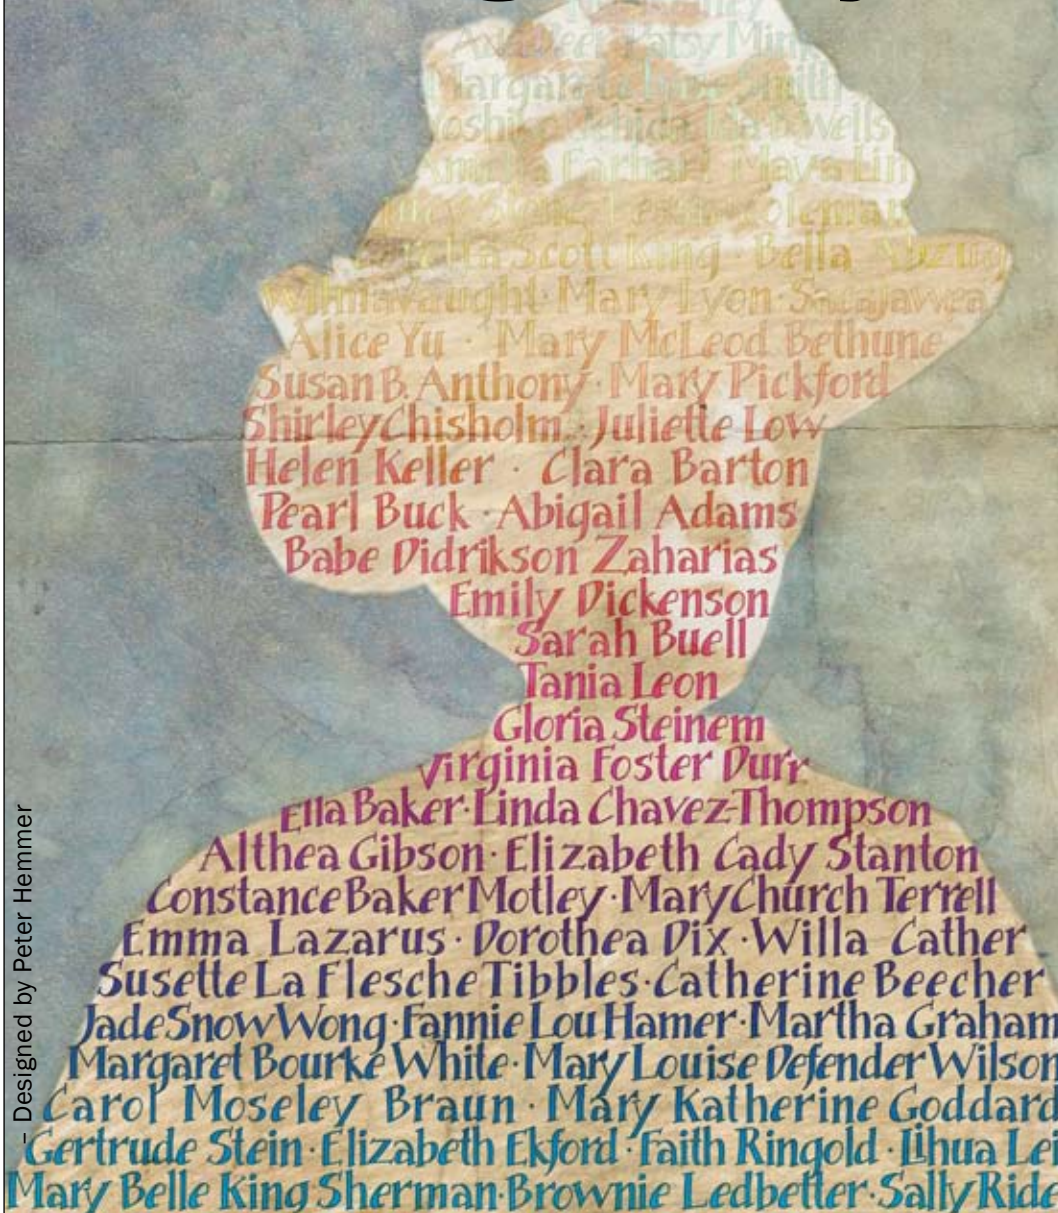 Patsy Mink
Margaret Chase Smith
Yoshiko Uchida Ida B. Wells
Amelia Earhart Maya Lin
Coretta Scott King · Bella Abzug
Wilma Vaught · Mary Lyon · Sacajawea
Alice Yu · Mary McLeod Bethune
Susan B. Anthony · Mary Pickford
Shirley Chisholm · Juliette Low
Helen Keller · Clara Barton
Pearl Buck · Abigail Adams
Babe Didrikson Zaharias
Emily Dickenson
Sarah Buell
Tania Leon
Gloria Steinem
Virginia Foster Durr
Ella Baker · Linda Chavez-Thompson
Althea Gibson · Elizabeth Cady Stanton
Constance Baker Motley · Mary Church Terrell
Emma Lazarus · Dorothea Dix · Willa Cather
Susette La Flesche Tibbles · Catherine Beecher
Jade Snow Wong · Fannie Lou Hamer · Martha Graham
Margaret Bourke White · Mary Louise Defender Wilson
Carol Moseley Braun · Mary Katherine Goddard
Gertrude Stein · Elizabeth Ekford · Faith Ringold · Lihua Lei
Mary Belle King Sherman · Brownie Ledbetter · Sally Ride
– Designed by Peter Hemmer